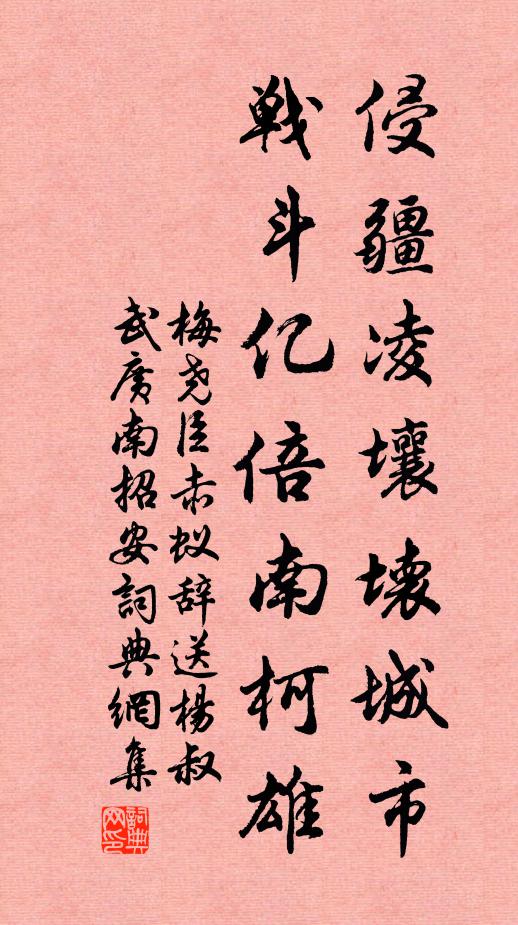 侵疆凌壤壊城市
戦斗亿倍南柯雄
梅尧臣赤蚁辞送楊叔
武廣南招安詞典網集
詞典网印